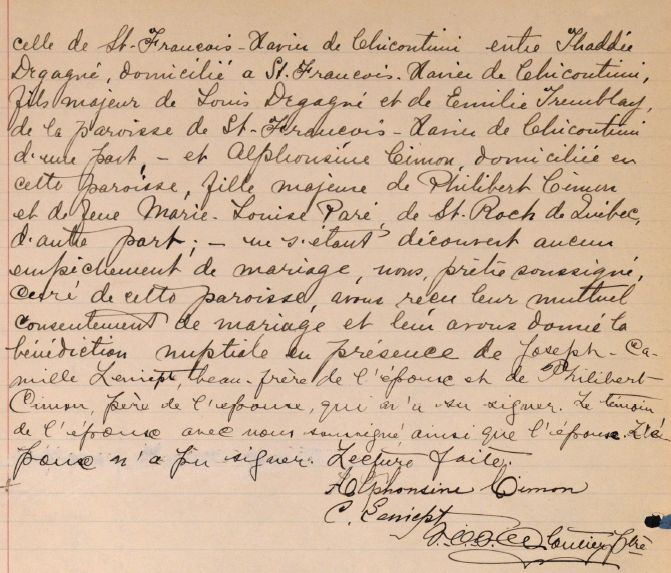 celle de St-François-Xavier de Chicoutimi entre Thaddée
Degagné, domicilié a St-François-Xavier de Chicoutimi,
fils majeur de Louis Degagné et de Emilie Tremblay,
de la paroisse de St-François-Xavier de Chicoutimi
d'une part, – et Alphonsine Cimon, domiciliée en
cette paroisse, fille majeure de Philibert Cimon
et de feue Marie-Louise Paré, de St. Roch de Québec,
d'autre part; – ne s'étant découvert aucun
empêchement de mariage, nous, prêtre soussigné,
curé de cette paroisse, avons reçu leur mutuel
consentement de mariage et leur avons donné la
bénédiction nuptiale en présence de Joseph-Ca-
mille beau-frère de l'épouse et de Philibert
Cimon, père de l'épouse, qui n'a su signer. Le témoin
de l'époux avec nous soussigné ainsi que l'épouse. L'é-
poux n'a pu signer. Lecture faite.
Alphonsine Cimon
C.
Cloutier Ptre